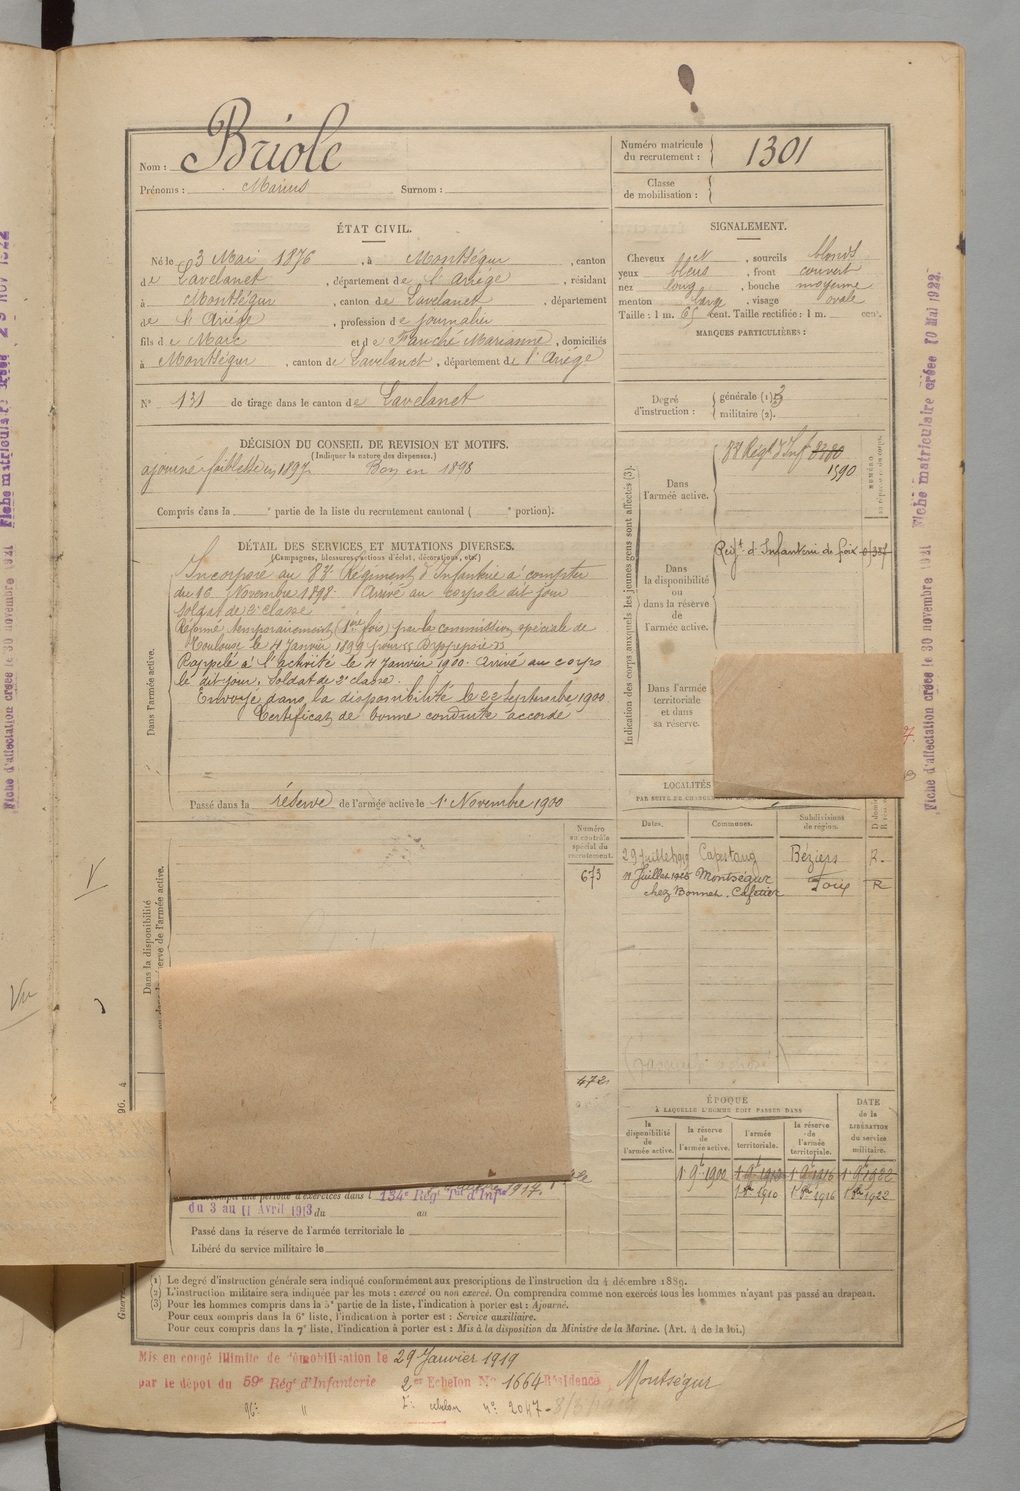 Nom : Briole
Prénoms : Marius Surnom :
Numéro matricule du recrutement : 1301
Classe de mobilisation :
ÉTAT CIVIL.
Né le 3 Mai 1876, à Montségur, canton
de Lavelanet, département de l'Ariége, résidant
à Montségur, canton de Lavelanet, département
de l'Ariége, profession de journalier
fils de Marc et de Fauché Marianne, domiciliés
à Montségur, canton de Lavelanet, département de l'Ariége
N° 131 de tirage dans le canton de Lavelanet
SIGNALEMENT.
Cheveux et, sourcils blonds
yeux bleus, front couvert
nez long, bouche moyenne
menton large, visage ovale
Taille : 1 m. 65 cent. Taille rectifiée : 1 m. cent.
MARQUES PARTICULIÈRES :
Degré d'instruction : générale (1) 3
militaire (2).
DÉCISION DU CONSEIL DE REVISION ET MOTIFS.
(Indiquer la nature des dispenses.)
ajourné faiblesse en 1897 Bon en 1898
Compris dans la e partie de la liste du recrutement cantonal ( e portion).
DÉTAIL DES SERVICES ET MUTATIONS DIVERSES.
(Campagnes, blessures, actions d'éclat, décorations, etc.)
Dans l'armée active.
Incorporé au 83e Régiment d'Infanterie à compter
du 16 Novembre 1898. Arrivé au corps le dit jour
Soldat de 2e classe
Réformé temporairement (1ère fois) par la commission spéciale de
Toulouse le 4 Janvier 1899 pour
Rappelé à l'activité le 4 Janvier 1900. Arrivé au corps
le dit jour, Soldat de 2e classe.
Envoyé dans la disponibilité le 22 Septembre 1900
Certificat de bonne conduite accordé
Passé dans la réserve de l'armée active le 1er Novembre 1900
Indication des corps auxquels les jeunes gens sont affectés (3).
Dans l'armée active.
83e Régt d'Inf
1590
Dans la disponibilité ou dans la réserve de l'armée active.
Reg.t d'Infanterie de foix
Dans l'armée territoriale et dans sa réserve.
LOCALITÉS
Dates. Communes. Subdivisions de région.
29 Juillet Capestang Béziers R.
Juillet Montségur Foix R
chez Bonnet. Cafetier
Numéro au contrôle spécial du recrutement.
673
Dans la disponibilité
472
ÉPOQUE
À LAQUELLE L'HOMME DOIT PASSER DANS
la disponibilité de l'armée active.
la réserve de l'armée active.
l'armée territoriale.
la réserve de l'armée territoriale.
DATE de la LIBÉRATION du service militaire.
1er 9bre 1900 1er 9bre 1913 1er 9bre 1916 1er 9bre 1922
1910 1916 1922
accompli une période d'exercices dans l 134e Rég Tal d'Infie
du 3 au 11 Avril 1913 du au
Passé dans la réserve de l'armée territoriale le
Libéré du service militaire le
(1) Le degré d'instruction générale sera indiqué conformément aux prescriptions de l'instruction du 4 décembre 1889.
(2) L'instruction militaire sera indiquée par les mots : exercé ou non exercé. On comprendra comme non exercés tous les hommes n'ayant pas passé au drapeau.
(3) Pour les hommes compris dans la 5e partie de la liste, l'indication à porter est : Ajourné.
Pour ceux compris dans la 6e liste, l'indication à porter est : Service auxiliaire.
Pour ceux compris dans la 7e liste, l'indication à porter est : Mis à la disposition du Ministre de la Marine. (Art. 4 de la loi.)
Mis en congé illimité de démobilisation le 29 Janvier 1919
par le dépot du 59e Régt d'Infanterie 2e Echelon No 1664 Résidence Montségur
echelon no 2047
Fiche d'affectation créée le 30 novembre 1921 Fiche matriculaire créée 10 Mai 1922.
Fiche d'affectation créée le 30 novembre 1921 Fiche matriculaire créée 29 NOV 1922
Vu